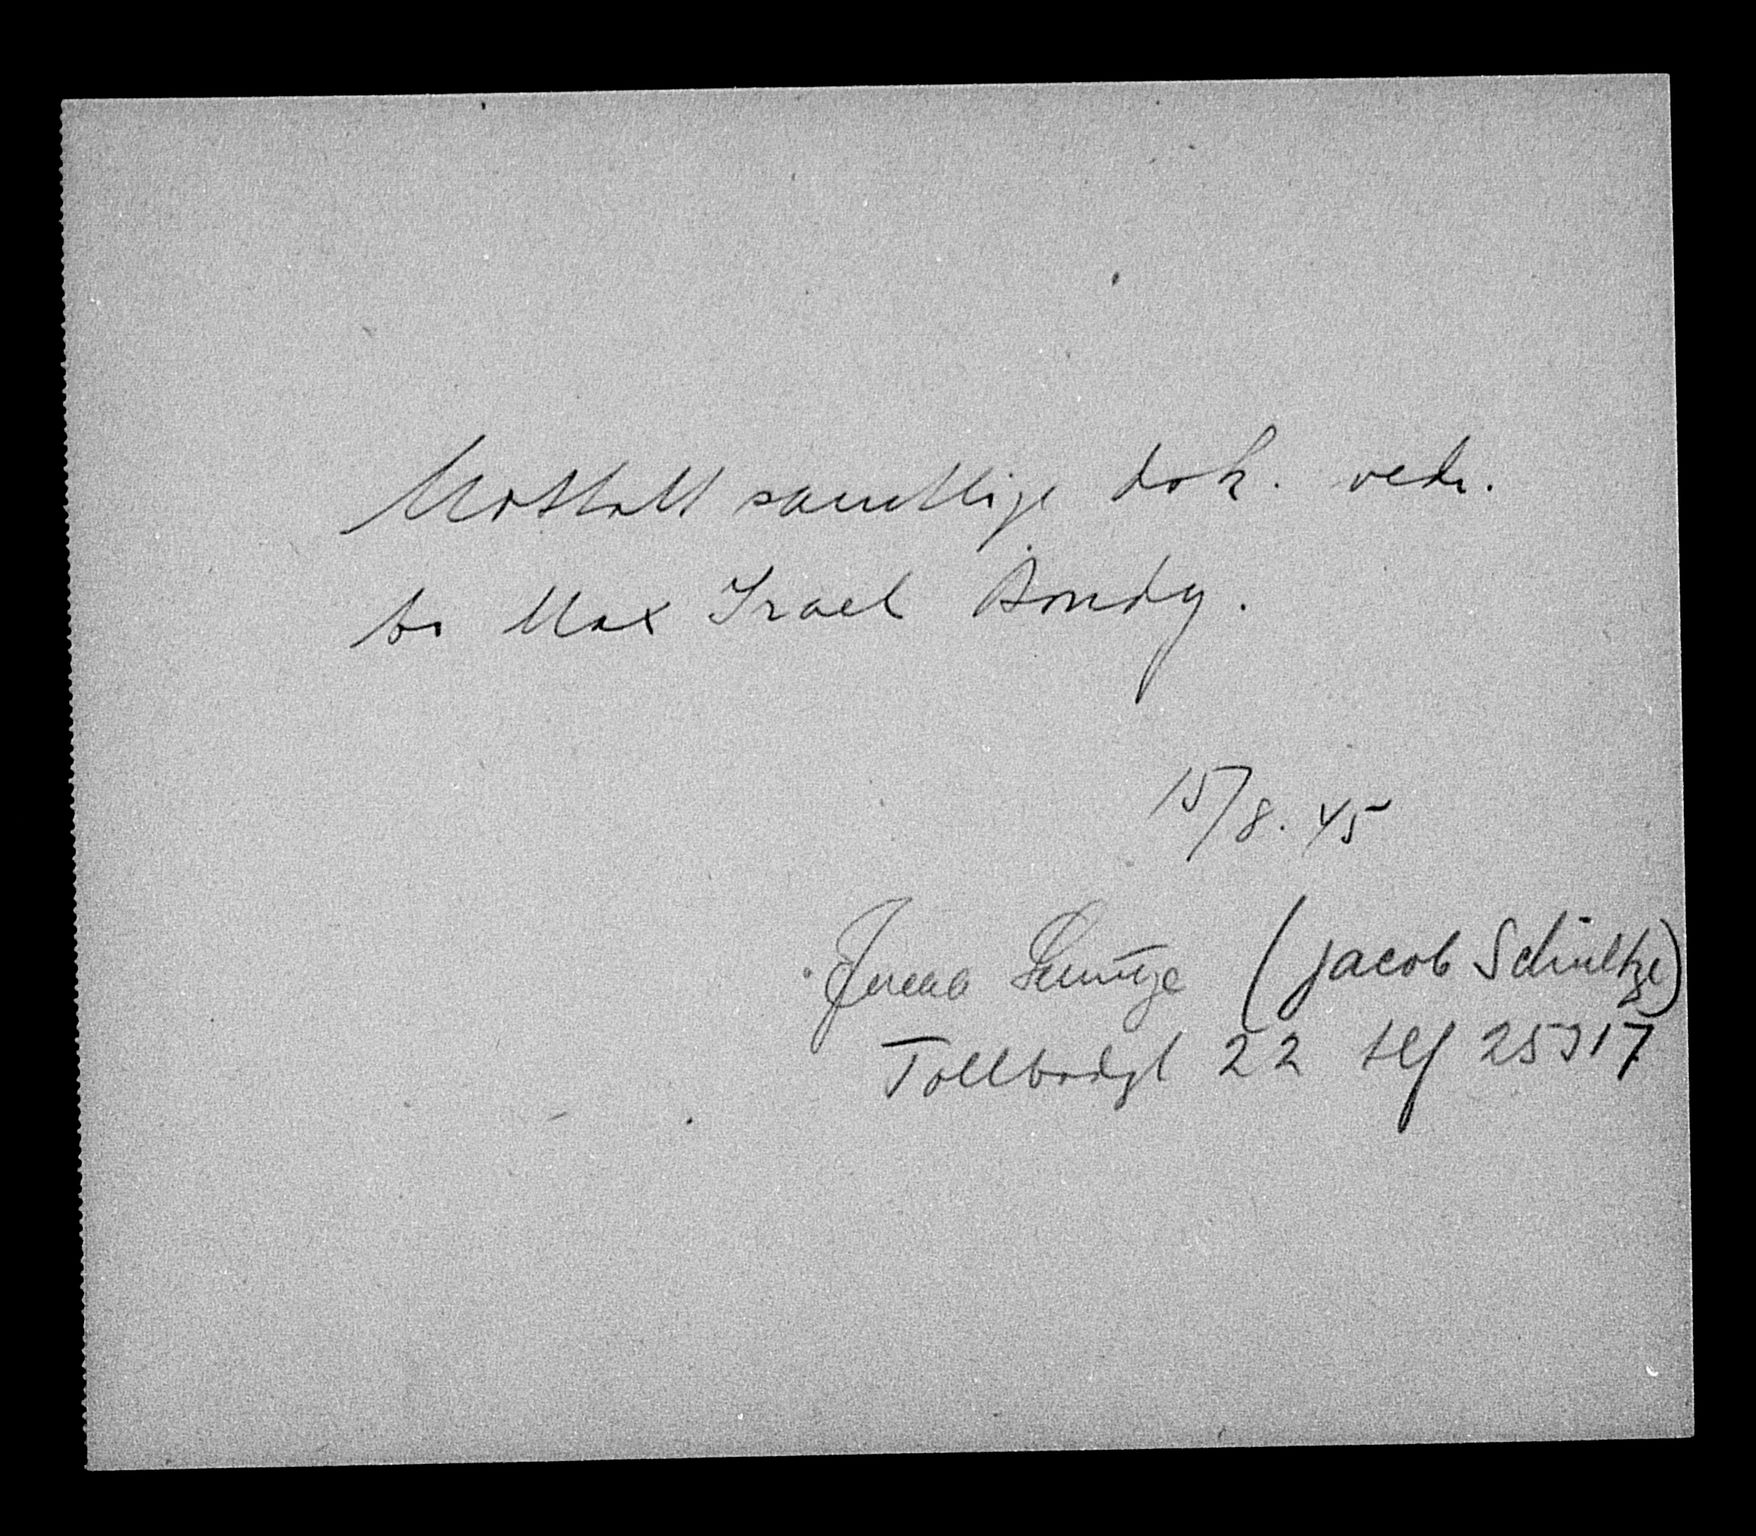 Mottatt samtlige dok. vedr.
bo Max Israel Bondy.
15/8. 45
Jacob Schultze (Jacob Schultze)
Tollbodgt 22 tlf 25317